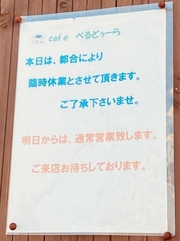 cafe べるどぅーら
本日は、都合により
臨時休業とさせて頂きます。
ご了承下さいませ。
明日からは、通常営業致します。
ご来店お待ちしております。